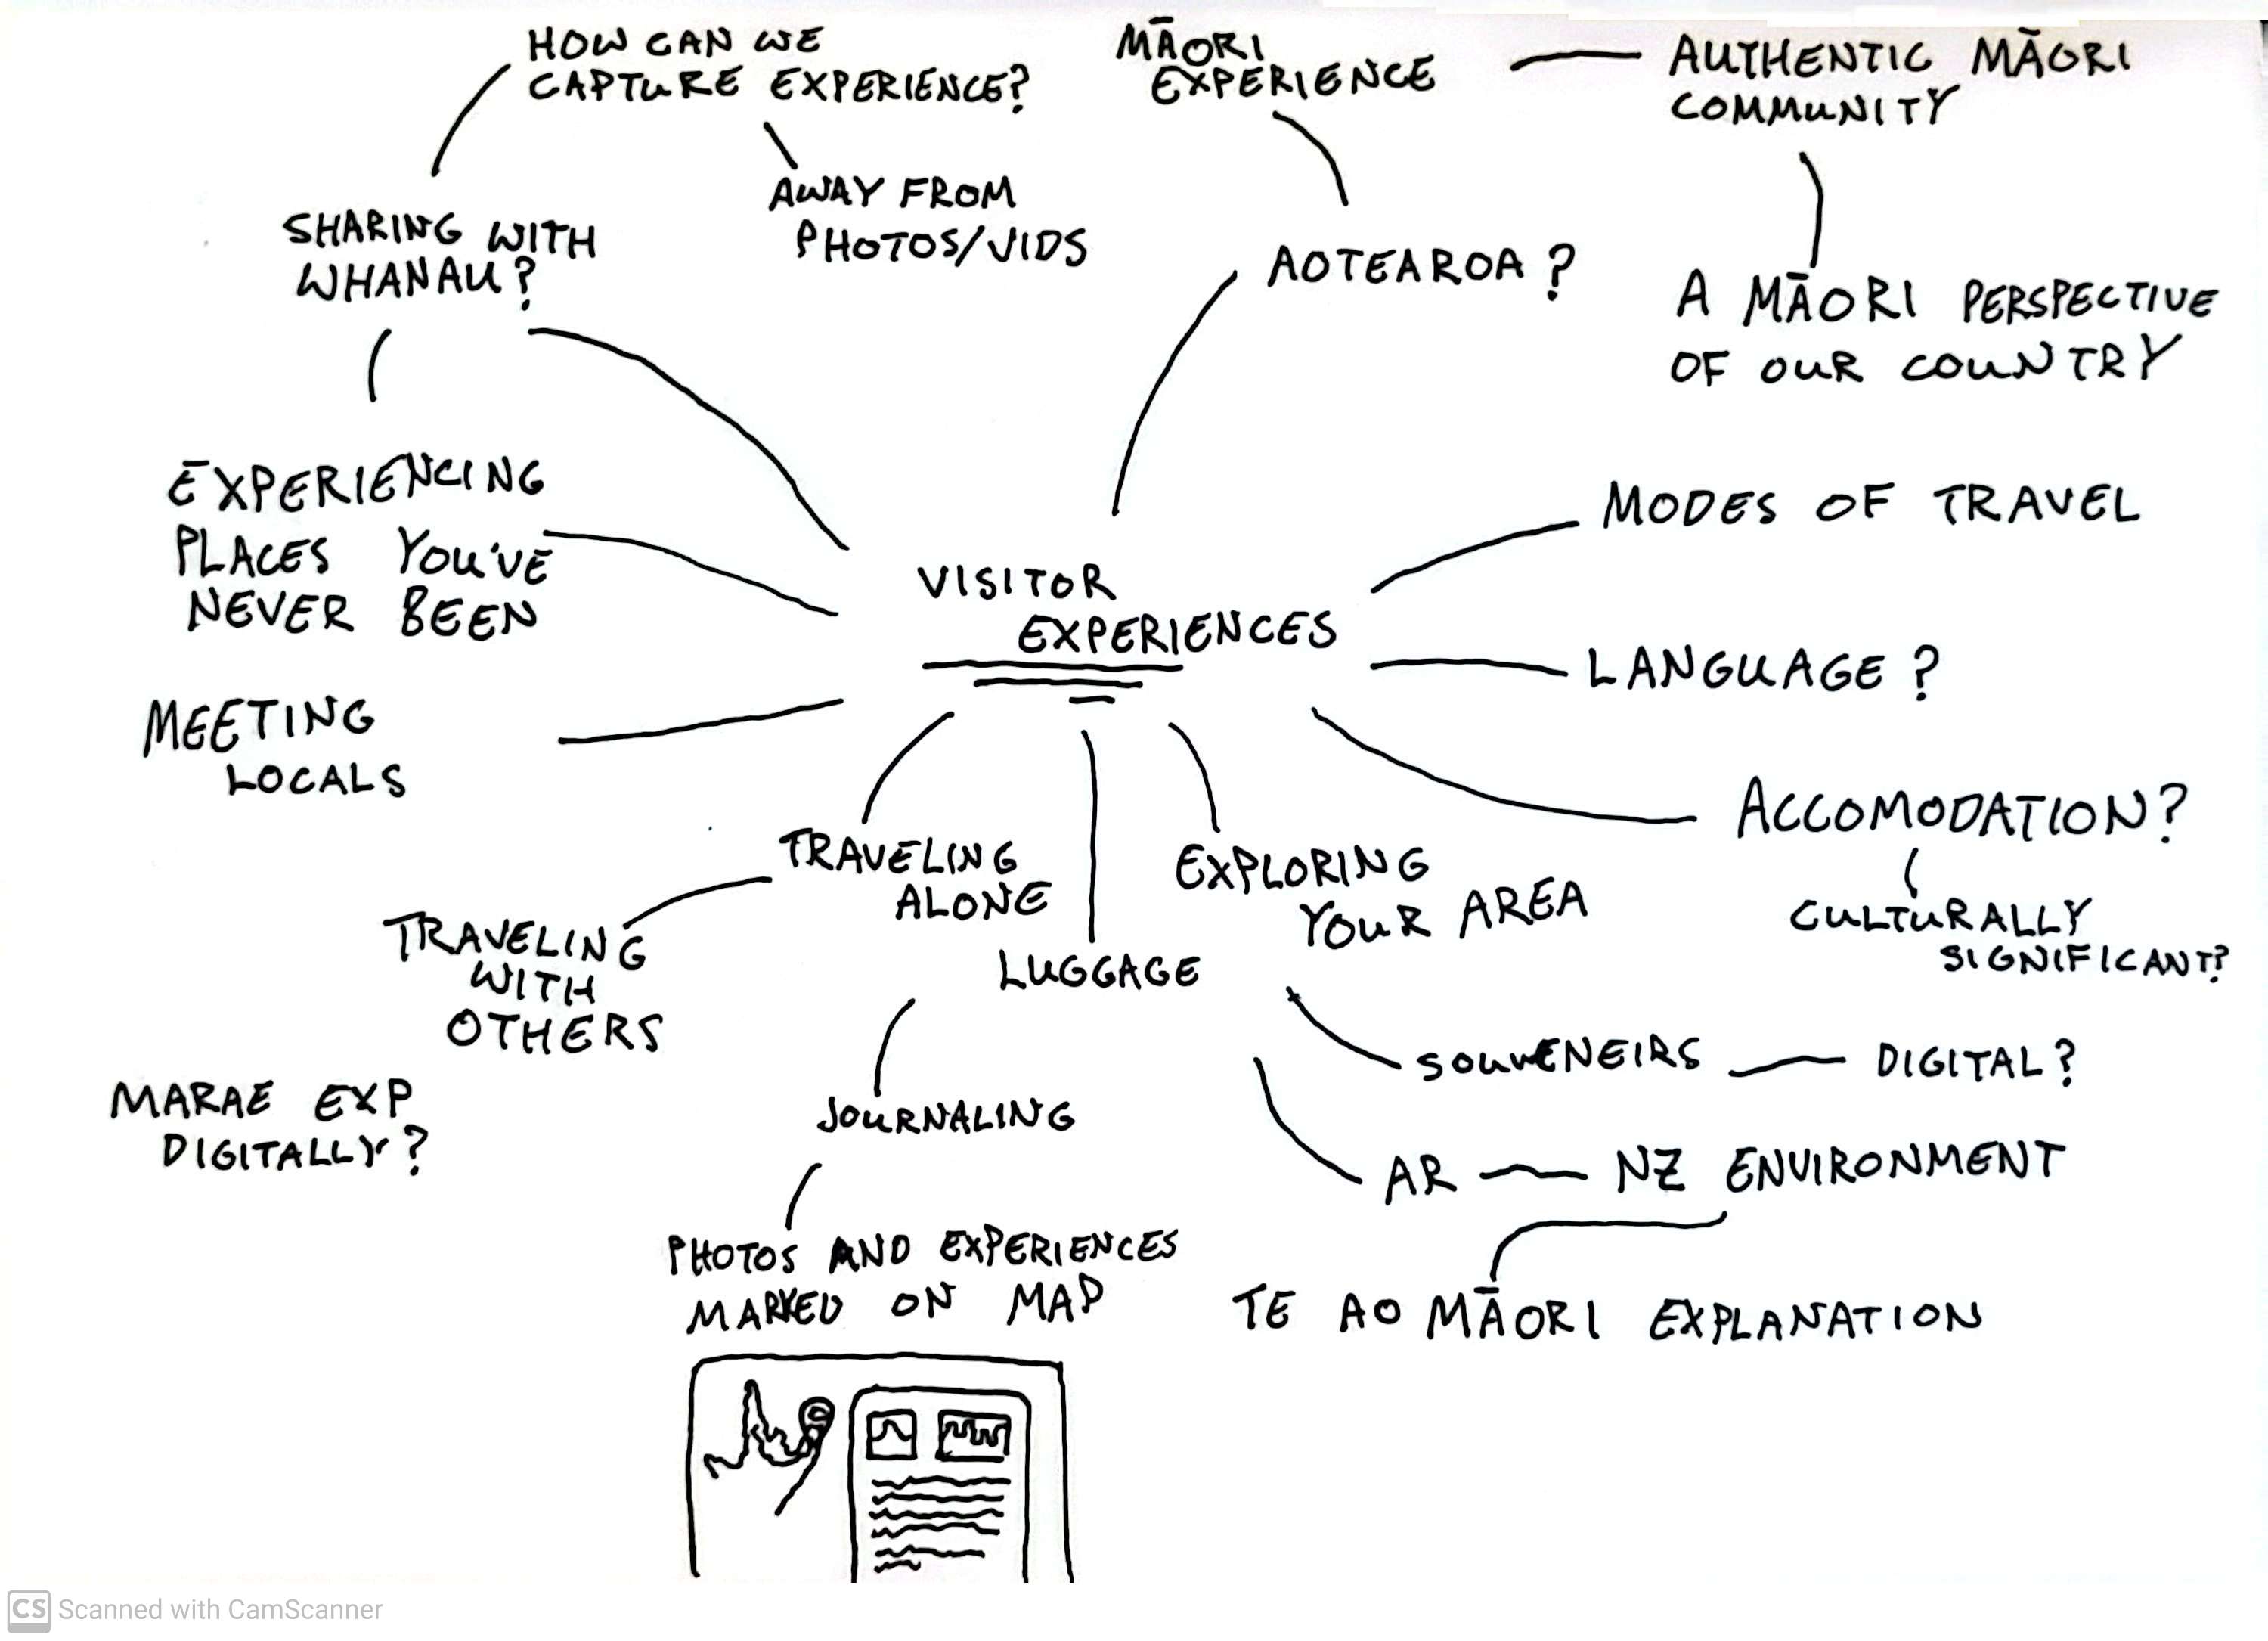 HOW CAN WE
CAPTURE EXPERIENCE?
MĀORI
EXPERIENCE
AUTHENTIC MĀORI
COMMUNITY
AWAY FROM
PHOTOS/VIDS
SHARING WITH
WHANAU?
AOTEAROA?
A MĀORI PERSPECTIVE
OF OUR COUNTRY
EXPERIENCING
PLACES YOU'VE
NEVER BEEN
MODES OF TRAVEL
VISITOR
EXPERIENCES
LANGUAGE?
MEETING
LOCALS
ACCOMODATION?
CULTURALLY
SIGNIFICANT?
TRAVELING
ALONE
EXPLORING
YOUR AREA
TRAVELING
WITH
OTHERS
LUGGAGE
SOUVENEIRS
DIGITAL?
MARAE EXP
DIGITALLY?
JOURNALING
AR
NZ ENVIRONMENT
PHOTOS AND EXPERIENCES
MARKED ON MAP
TE AO MĀORI EXPLANATION
CS Scanned with CamScanner